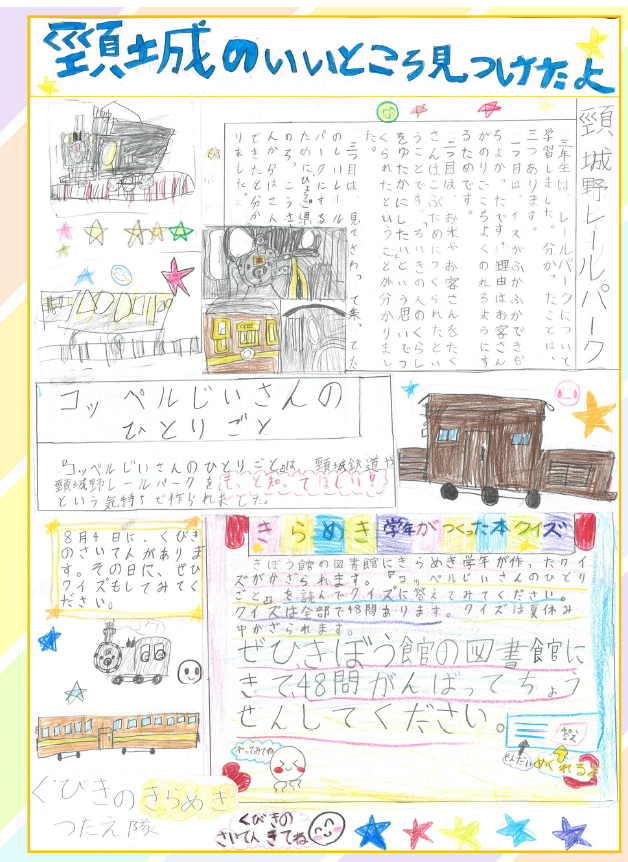 頸城のいいところ見つけたよ
頸城野レールパーク
三年生は、レールパークについて
学習しました。分かったことは、
三つあります。
一つ目は、イスがふかふかできも
ちよかったです。理由はお客さん
がのりごこちよくのれるようにす
るためです。
二つ目は、お米やお客さんをたく
さんはこぶためにつくられたとい
うことです。ちいきの人のくらし
をゆたかにしたいという思いでつ
くられたということが分かりまし
た。
三つ目は、見てさわって乗ってた
のしいレール
パークにする
ために
できたと分か
りました。
コッペルじいさんの
ひとりごと
『コッペルじいさんのひとりごと』は、頸城鉄道や
頸城野レールパークをもっと知ってほしい!!
という気持ちで作られました。
8月4日に、くびき
のさいてんがありま
す。その日に、ぜひ
クイズもしてみてく
ださい。
きらめき学年がつくった本クイズ
きぼう館の図書館にきらめき学年が作ったクイ
ズがかざられます。『コッペルじいさんのひとり
ごと』を読んでクイズに答えてみてください。
クイズは全部で48問あります。クイズは夏休み
中かざられます。
ぜひ、きぼう館の図書館に
きて、48問がんばってちょう
せんしてください。
答え
もんだい
めくれるよ
やってみてね
くびきのきらめき
つたえ隊
くびきの
さいてんきてね